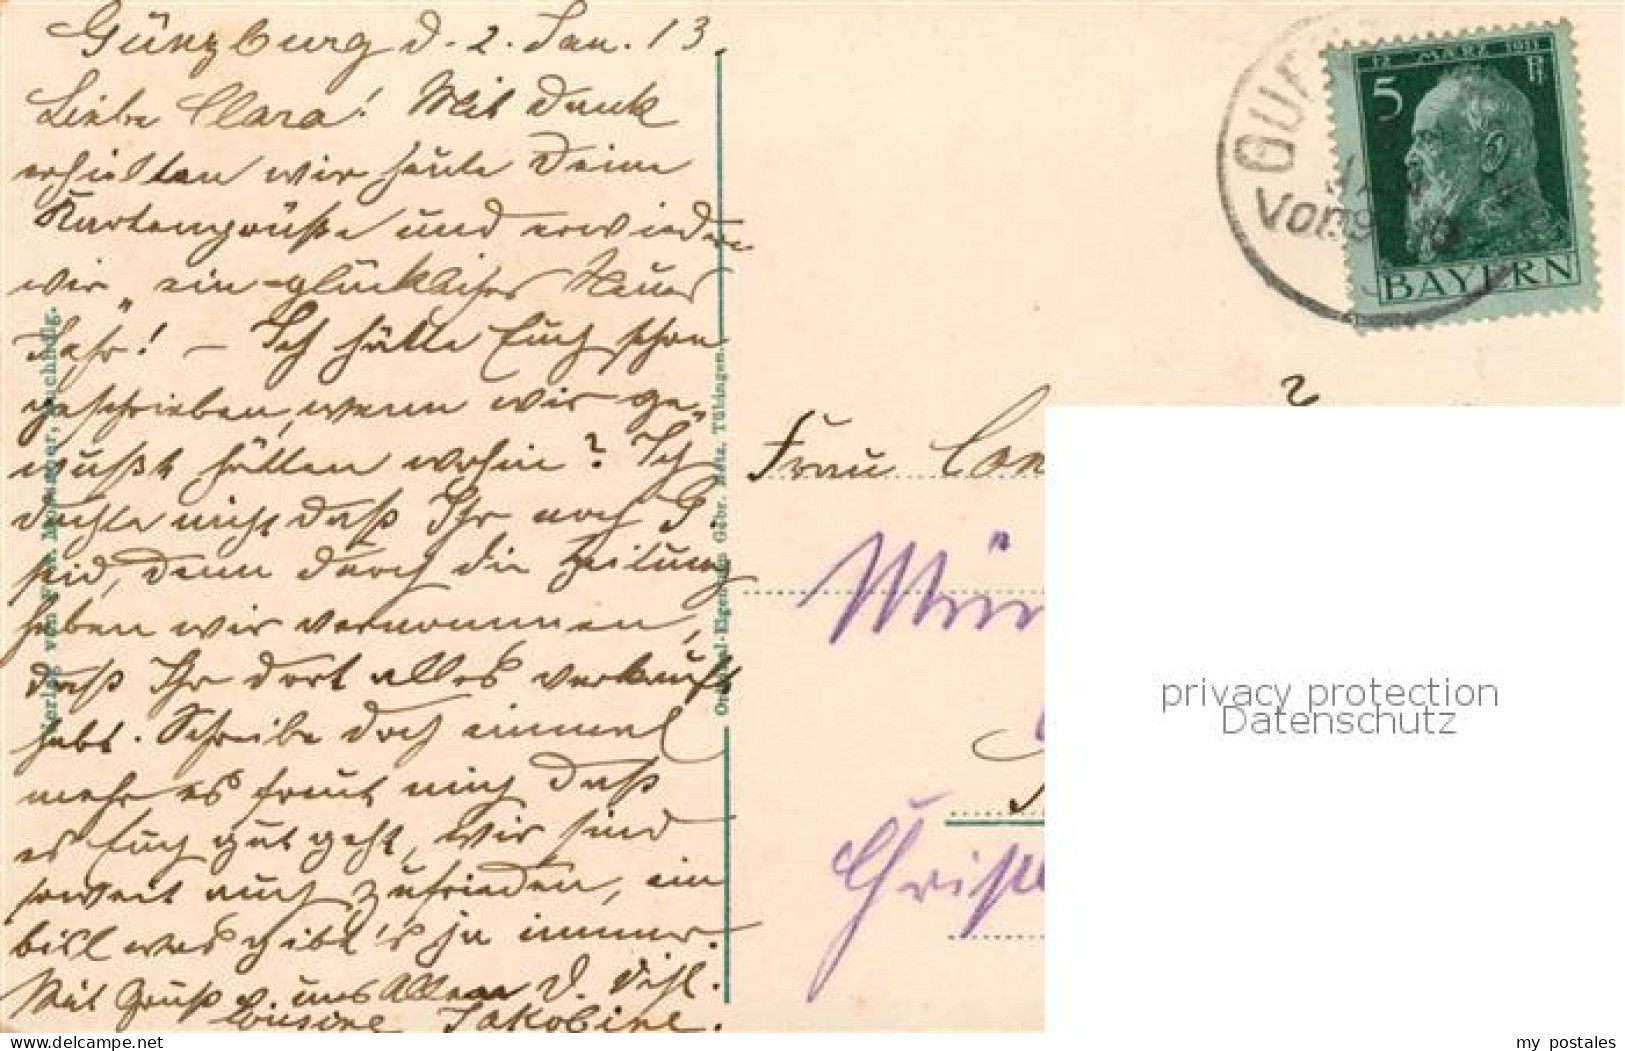 Günzburg d. 2. Jan. 13.
Liebe Clara! Mit Dank
erhielten wir heute Deine
Kartengrüße und erwiedern
wir "ein glückliches Neues
Jahr"! – Ich hätte Euch schon
geschrieben, wenn wir ge-
wußt hätten wohin? Ich
dachte nicht daß Ihr noch S.
seid, denn durch die Zeitung
haben wir vernommen,
daß Ihr dort alles verkauft
habt. Schreibe doch einmal
mehr es freut mich daß
es Euch gut geht, wir sind
soweit auch zufrieden, ein
bisl was gibt's ja immer.
Mit Gruß v. uns Allen D.
Cousine Jakobine.
Verlag von Frz. Buchhdlg.
Original-Eigentum Gebr. Metz, Tübingen.
GU
Vorm.
12. MÄRZ 1911
5 Pf
BAYERN
Frau Con
Mün
Christ
privacy protection
Datenschutz
www.delcampe.net
my_postales